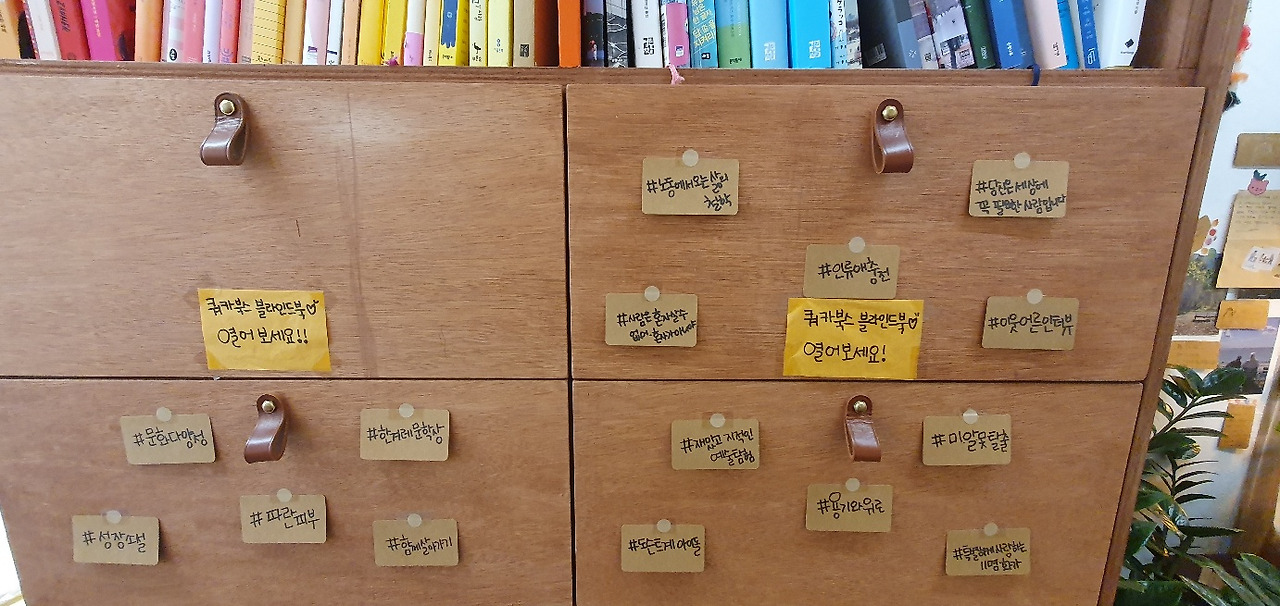 쿼카북스 블라인드북♡
열어보세요!!
#노동에서오는 삶의
철학
#당신은 세상에
꼭 필요한 사람입니다
#인류애충전
#사람은 혼자살수
없어·혼자가아니야
쿼카북스 블라인드북♡
열어보세요!
#이웃어른인터뷰
#문화다양성
#한겨레문학상
#성장소설
#파란피부
#함께살아가기
#재밌고 지적인
예술탐험
#미알못탈출
#용기와위로
#도슨트계 아이돌
#특별하게사랑하는
11명 화가